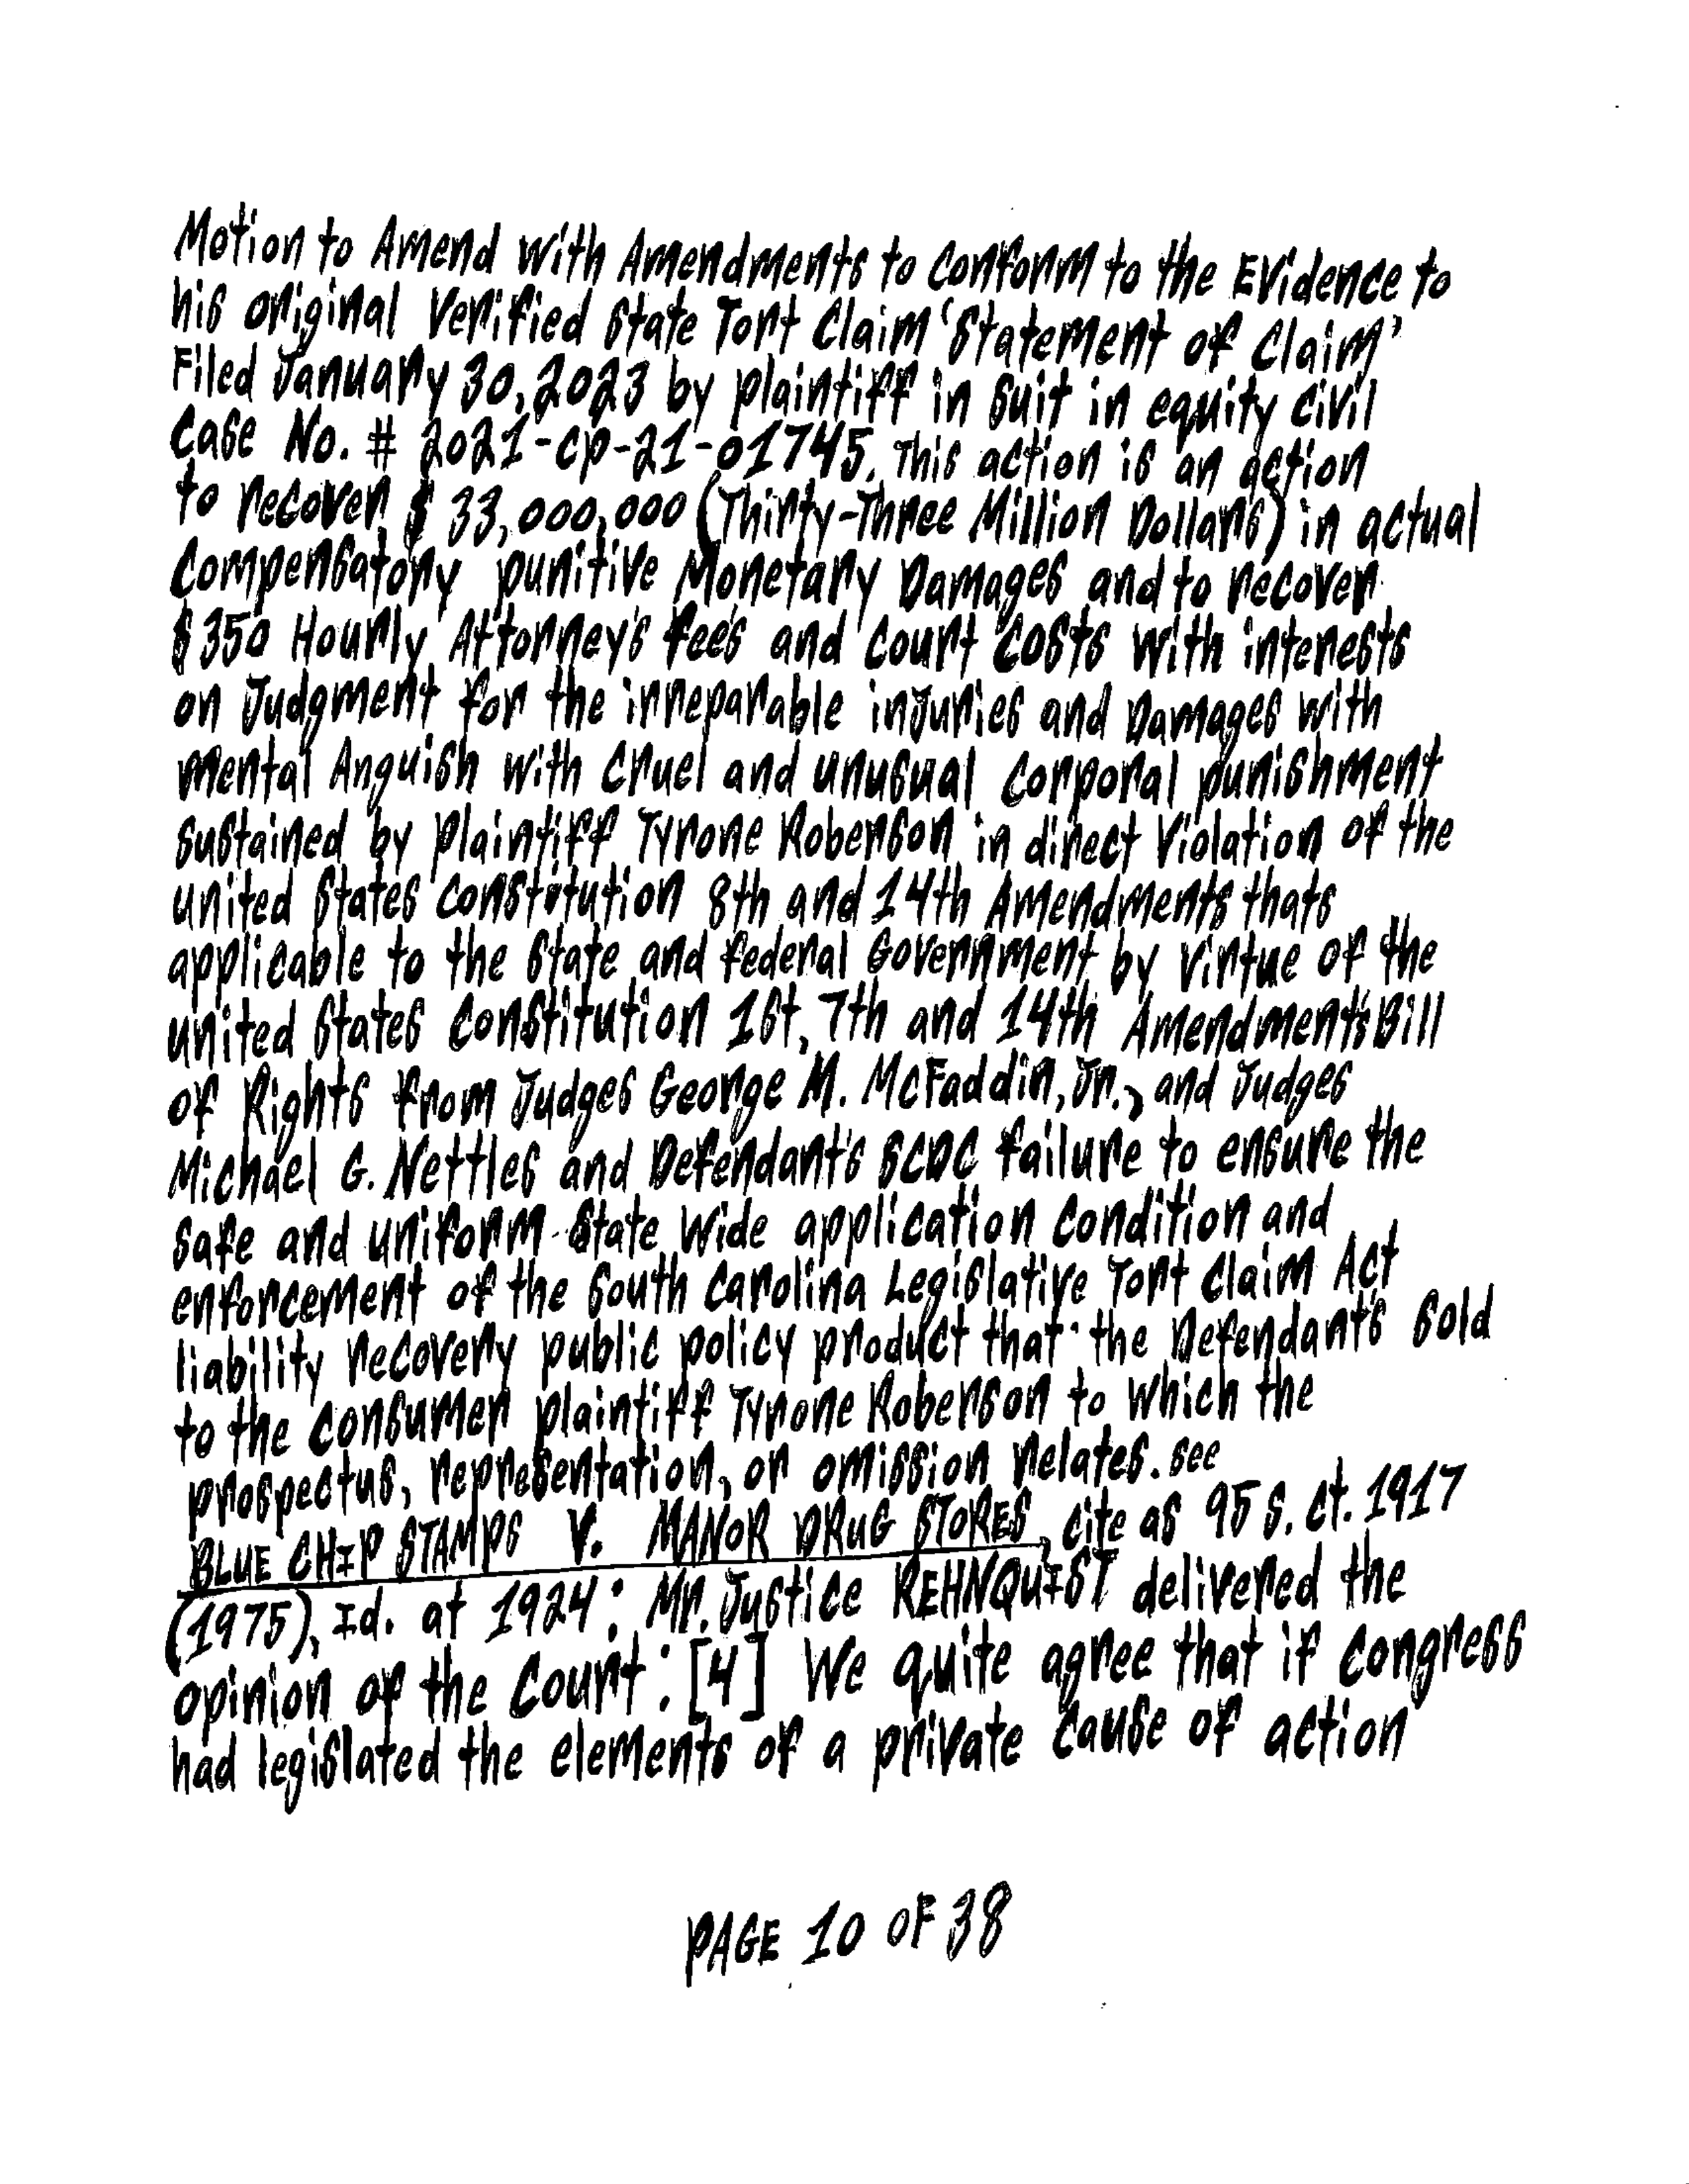 Motion to Amend with Amendments to Conform to the Evidence to
his original Verified State Tort Claim 'Statement of Claim'
Filed January 30, 2023 by plaintiff in suit in equity civil
Case No. # 2021-cp-21-01745. This action is an action
to recover $ 33,000,000 (Thirty-Three Million Dollars) in actual
Compensatory punitive Monetary Damages and to recover
$350 Hourly Attorney's fee's and court costs with interests
on Judgment for the irreparable injuries and Damages with
mental Anguish with cruel and unusual corporal punishment
sustained by plaintiff Tyrone Roberson in direct Violation of the
united States Constitution 8th and 14th Amendments thats
applicable to the State and federal Government by virtue of the
united States Constitution 1st, 7th and 14th Amendment's Bill
of Rights from Judges George M. McFaddin, Jr., and Judges
Michael G. Nettles and Defendant's SCDC failure to ensure the
safe and uniform State Wide application condition and
enforcement of the South Carolina Legislative Tort Claim Act
liability recovery public policy product that the Defendant's sold
to the consumer plaintiff Tyrone Roberson to which the
prospectus, representation, or omission relates. see
BLUE CHIP STAMPS V. MANOR DRUG STORES, cite as 95 S. Ct. 1917
(1975), Id. at 1924: Mr. Justice REHNQUIST delivered the
opinion of the Court: [4] We quite agree that if Congress
had legislated the elements of a private cause of action
PAGE 10 OF 38